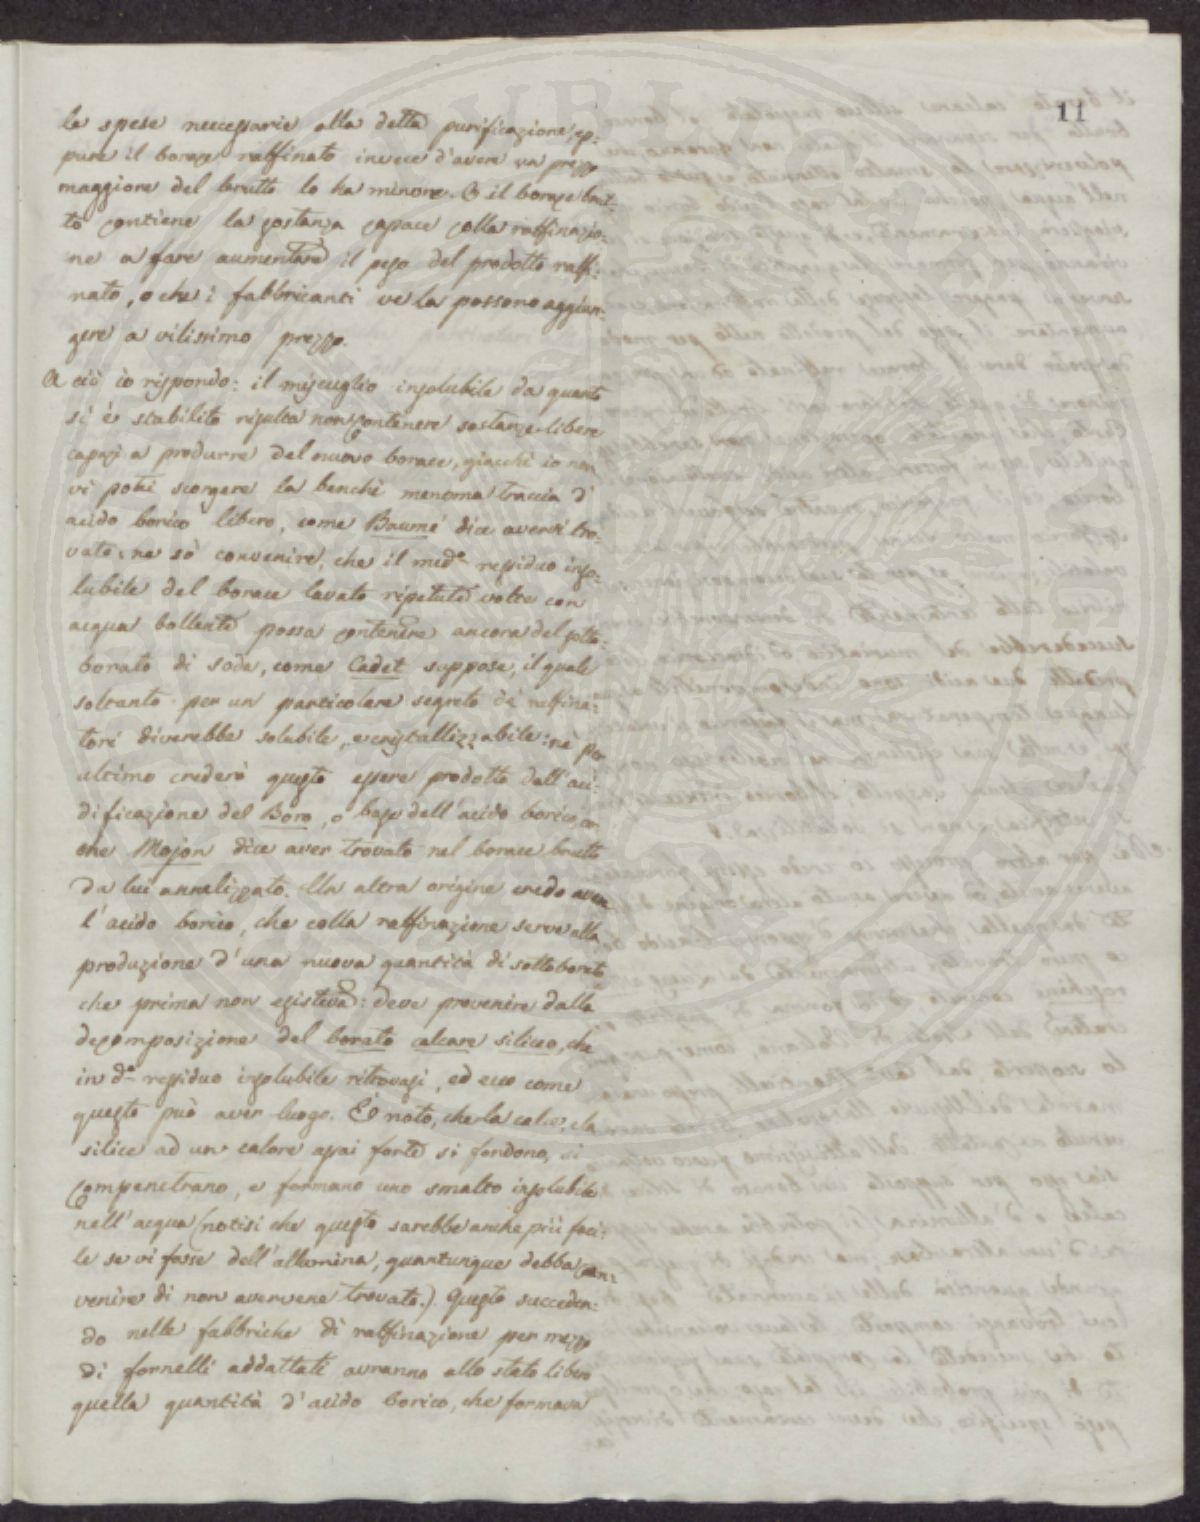 11
le spese neccessarie alla detta purificazione, ep-
pure il borace raffinato invece d'avere un prezzo
maggiore del brutto lo ha minore. O il borace brut-
to contiene la sostanza capace colla raffinazio-
ne a fare aumentare il peso del prodotto raffi-
nato, o che i fabbricanti ve la possono aggiun-
gere a vilissimo prezzo.
A ciò io rispondo: il miscuglio insolubile da quanto
si è stabilito risulta non contenere sostanze libere
capaci a produrre del nuovo borace, giacchè io non
vi potei scorgere la benchè menoma traccia d'
acido borico libero, come Baumé dice avervi tro-
vato: ne sò convenire, che il medo residuo inso-
lubile del borace lavato ripetute volte con
acqua bollente possa contenere ancora del sotto-
borato di soda, come Cadet suppose, il quale
soltanto per un particolare segreto dé raffina-
tori diverebbe solubile, e cristallizzabile: nè per
ultimo crederò questo essere prodotto dall'aci-
dificazione del Boro, o base dell'acido borico,
che Mojon dice aver trovato nel borace brutto
da lui annalizzato. Un altra origine credo avere
l'acido borico, che colla raffinazione serve alla
produzione d'una nuova quantità di sottoborato
che prima non esisteva: deve provenire dalla
decomposizione del borato calcare siliceo, che
in do residuo insolubile ritrovasi, ed ecco come
questo può aver luogo. È noto, che la calce, e la
silice ad un calore assai forte si fondono, si
compenetrano, e formano uno smalto insolubile
nell'acqua (notisi che questo sarebbe anche più faci-
le se vi fosse dell'allumina, quantunque debba con-
venire di non avervene trovato.). Questo succeden-
do nelle fabbriche di raffinazione per mezzo
di fornelli addattati avranno allo stato libero
quella quantità d'acido borico, che formava